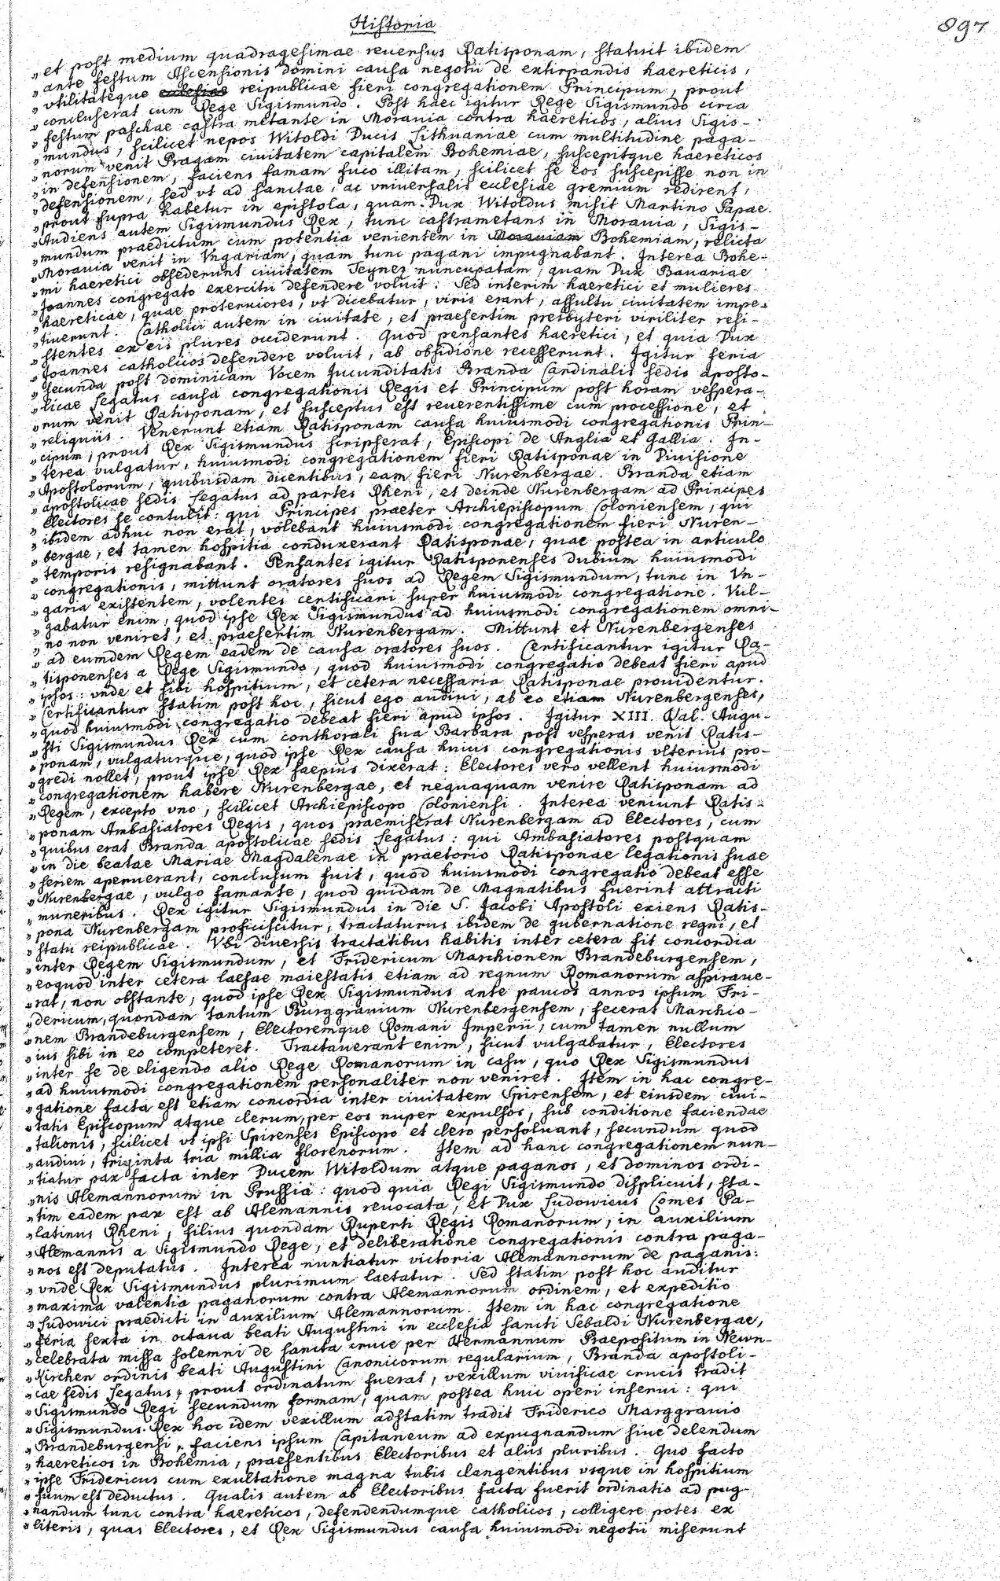 Historia
897
„ et post medium quadragesimae reuersus Ratisponam, statuit ibidem
„ ante festum Ascensionis domini causa negotii de extirpandis haereticis,
„ vtilitateque reipublicae fieri congregationem Principum, prout
„ concluserat cum Rege Sigismundo. Post haec igitur Rege Sigismundo circa
„ festum paschae castra metante in Morauia contra haereticos, alius Sigis-
„ mundus, scilicet nepos Witoldi Ducis Lithuaniae cum multitudine paga-
„ norum venit Pragam ciuitatem capitalem Bohemiae, suscepitque haereticos
„ in defensionem, faciens famam fuco illitam, scilicet se eos suscepisse non in
„ defensionem, sed vt ad sanctae, ac vniuersalis ecclesiae gremium redirent,
„ prout supra habetur in epistola, quam Dux Witoldus misit Martino Papae.
„ Audiens autem Sigismundus Rex, tunc castrametans in Morauia, Sigis-
„ mundum praedictum cum potentia venientem in Morauiam Bohemiam, relicta
„ Morauia venit in Vngariam, quam tunc pagani impugnabant. Interea Bohe-
„ mi haeretici obsederunt ciuitatem Teynez nuncupatam, quam Dux Bauariae
„ Joannes congregato exercitu defendere voluit. Sed interim haeretici et mulieres
„ haereticae, quae proteruiores, vt dicebatur, viris erant, assultu ciuitatem impe-
„ tiuerunt. Catholici autem in ciuitate, et praesertim presbyteri viriliter resi-
„ stentes ex eis plures occiderunt. Quod pensantes haeretici, et quia Dux
„ Joannes catholicos defendere voluit, ab obsidione recesserunt. Igitur feria
„ secunda post dominicam Vocem jucunditatis Branda Cardinalis sedis aposto-
„ licae Legatus causa congregationis Regis et Principum post horam vespera-
„ rum venit Ratisponam, et susceptus est reuerentissime cum processione, et
„ reliquiis. Venerunt etiam Ratisponam causa huiusmodi congregationis Prin-
„ cipum, prout Rex Sigismundus scripserat, Episcopi de Anglia et Gallia. In-
„ terea vulgatur, huiusmodi congregationem fieri Ratisponae in Diuisione
„ Apostolorum, quibusdam dicentibus, eam fieri Nurenbergae. Branda etiam
„ apostolicae sedis Legatus ad partes Rheni, et deinde Nurenbergam ad Principes
„ Electores se contulit: qui Principes praeter Archiepiscopum Coloniensem, qui
„ ibidem adhuc non erat, volebant huiusmodi congregationem fieri Nuren-
„ bergae, et tamen hospitia conduxerant Ratisponae, quae postea in articulo
„ temporis resignabant. Pensantes igitur Ratisponenses dubium huiusmodi
„ congregationis, mittunt oratores suos ad Regem Sigismundum, tunc in Vn-
„ garia existentem, volentes certificari super huiusmodi congregatione. Vul-
„ gabatur enim, quod ipse Rex Sigismundus ad huiusmodi congregationem omni-
„ no non veniret, et praesertim Nurenbergam. Mittunt et Nurenbergenses
„ ad eumdem Regem eadem de causa oratores suos. Certificantur igitur Ra-
„ tisponenses a Rege Sigismundo, quod huiusmodi congregatio debeat fieri apud
„ ipsos: vnde et sibi hospitium, et cetera necessaria Ratisponae prouidentur.
„ Certificantur statim post hoc, sicut ego audiui, ab eo etiam Nurenbergenses,
„ quod huiusmodi congregatio debeat fieri apud ipsos. Igitur XIII. Kal. Augu-
„ sti Sigismundus Rex cum conthorali sua Barbara post vesperas venit Ratis-
„ ponam, vulgaturque, quod ipse Rex causa huius congregationis vlterius pro-
„ gredi nollet, prout ipse Rex saepius dixerat: Electores vero vellent huiusmodi
„ congregationem habere Nurenbergae, et nequaquam venire Ratisponam ad
„ Regem, excepto vno, scilicet Archiepiscopo Coloniensi. Interea veniunt Ratis-
„ ponam Ambasiatores Regis, quos praemiserat Nurenbergam ad Electores, cum
„ quibus erat Branda apostolicae sedis Legatus: qui Ambasiatores postquam
„ in die beatae Mariae Magdalenae in praetorio Ratisponae legationis suae
„ seriem aperuerant, conclusum fuit, quod huiusmodi congregatio debeat esse
„ Nurenbergae, vulgo famante, quod quidam de Magnatibus fuerint attracti
„ muneribus. Rex igitur Sigismundus in die S. Jacobi Apostoli exiens Ratis-
„ pona Nurenbergam proficiscitur, tractaturus ibidem de gubernatione regni, et
„ statu reipublicae. Vbi diuersis tractatibus habitis inter cetera fit concordia
„ inter Regem Sigismundum, et Fridericum Marchionem Brandeburgensem,
„ eoquod inter cetera laesae maiestatis etiam ad regnum Romanorum aspiraue-
„ rat, non obstante, quod ipse Rex Sigismundus ante paucos annos ipsum Fri-
„ dericum, quondam tantum Burggrauium Nurenbergensem, fecerat Marchio-
„ nem Brandeburgensem, Electoremque Romani Imperii, cum tamen nullum
„ ius sibi in eo competeret. Tractauerant enim, sicut vulgabatur, Electores
„ inter se de eligendo alio Rege Romanorum in casu, quo Rex Sigismundus
„ ad huiusmodi congregationem personaliter non veniret. Item in hac congre-
„ gatione facta est etiam concordia inter ciuitatem Spirensem, et eiusdem ciui-
„ tatis Episcopum atque clerum, per eos nuper expulsos, sub conditione faciendae
„ talionis, scilicet vt ipsi Spirenses Episcopo et clero persoluant, secundum quod
„ audiui, triginta tria millia florenorum. Item ad hanc congregationem nun-
„ tiatur pax facta inter Ducem Witoldum atque paganos, et dominos ordi-
„ nis Alemannorum in Prussia: quod quia Regi Sigismundo displicuit, sta-
„ tim eadem pax est ab Alemannis reuocata, et Dux Ludowicus Comes Pa-
„ latinus Rheni, filius quondam Ruperti Regis Romanorum, in auxilium
„ Alemannis a Sigismundo Rege, et deliberatione congregationis contra paga-
„ nos est deputatus. Interea nuntiatur victoria Alemannorum de paganis:
„ vnde Rex Sigismundus plurimum laetatur. Sed statim post hoc auditur
„ maxima valentia paganorum contra Alemannorum ordinem, et expeditio
„ Ludowici praedicti in auxilium Alemannorum. Item in hac congregatione
„ feria sexta in octaua beati Augustini in ecclesia sancti Sebaldi Nurenbergae,
„ celebrata missa solemni de sancta cruce per Hermannum Praepositum in Newn-
„ kirchen ordinis beati Augustini Canonicorum regularium, Branda apostoli-
„ cae sedis Legatus, prout ordinatum fuerat, vexillum viuificae crucis tradit
„ Sigismundo Regi secundum formam, quam postea huic operi inserui: qui
„ Sigismundus Rex hoc idem vexillum adstatim tradit Friderico Marggrauio
„ Brandeburgensi, faciens ipsum Capitaneum ad expugnandum siue delendum
„ haereticos in Bohemia, praesentibus Electoribus et aliis pluribus. Quo facto
„ ipse Fridericus cum exultatione magna tubis clangentibus vsque in hospitium
„ suum est deductus. Qualis autem ab Electoribus facta fuerit ordinatio ad pug-
„ nandum tunc contra haereticos, defendendumque catholicos, colligere potes ex
„ literis, quas Electores, et Rex Sigismundus causa huiusmodi negotii miserunt